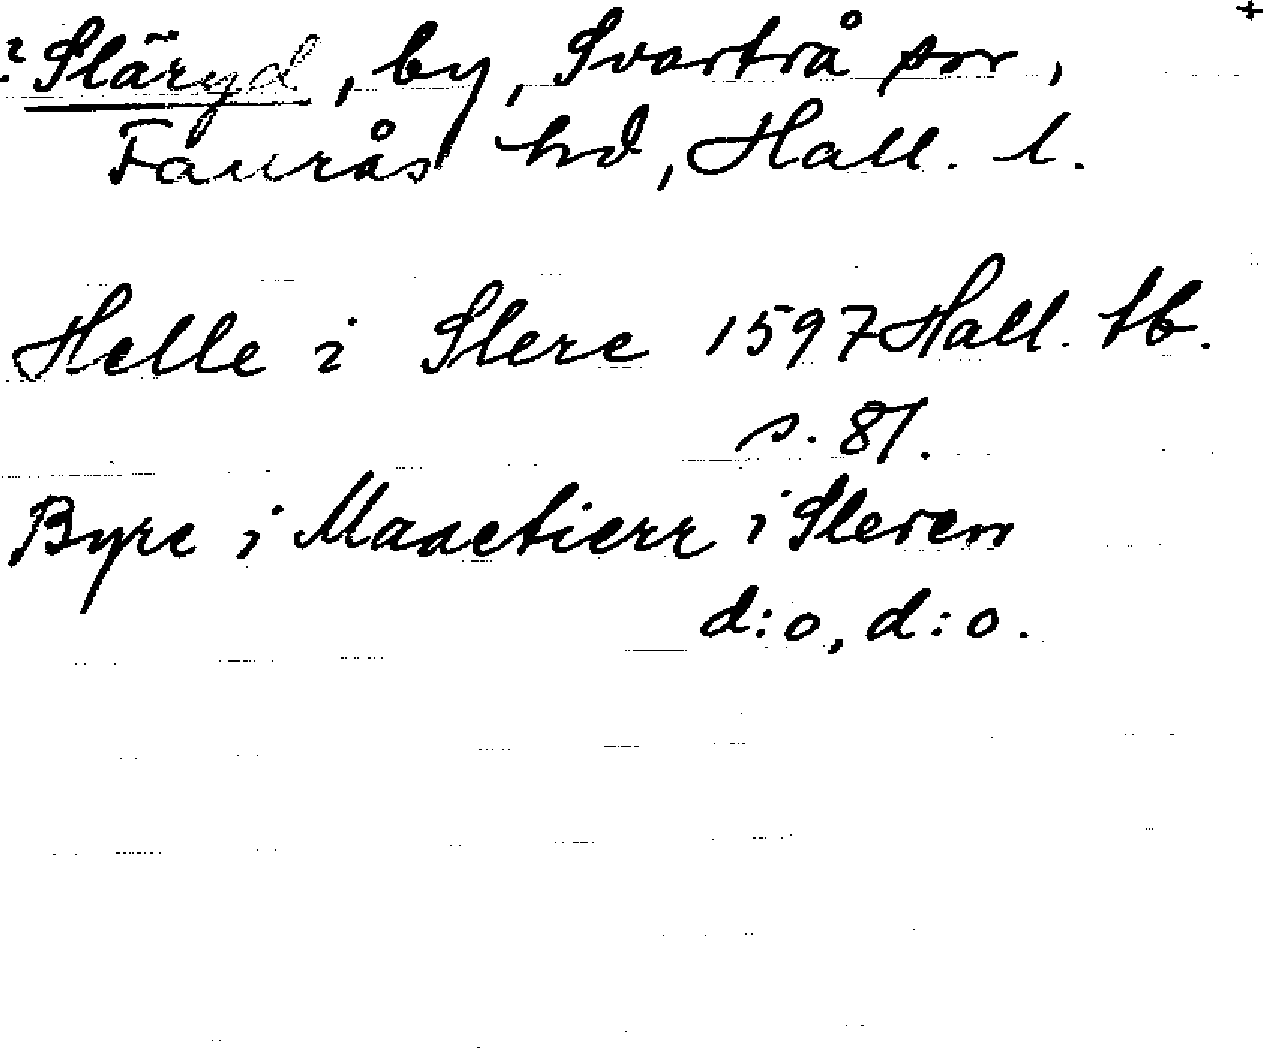 +
? Släryd, by, Svartrå sn,
Faurås hd, Hall. l.
Helle i Slere 1597 Hall. tb.
s. 81.
Byre i Maaetierr i Sleren
d:o, d:o.